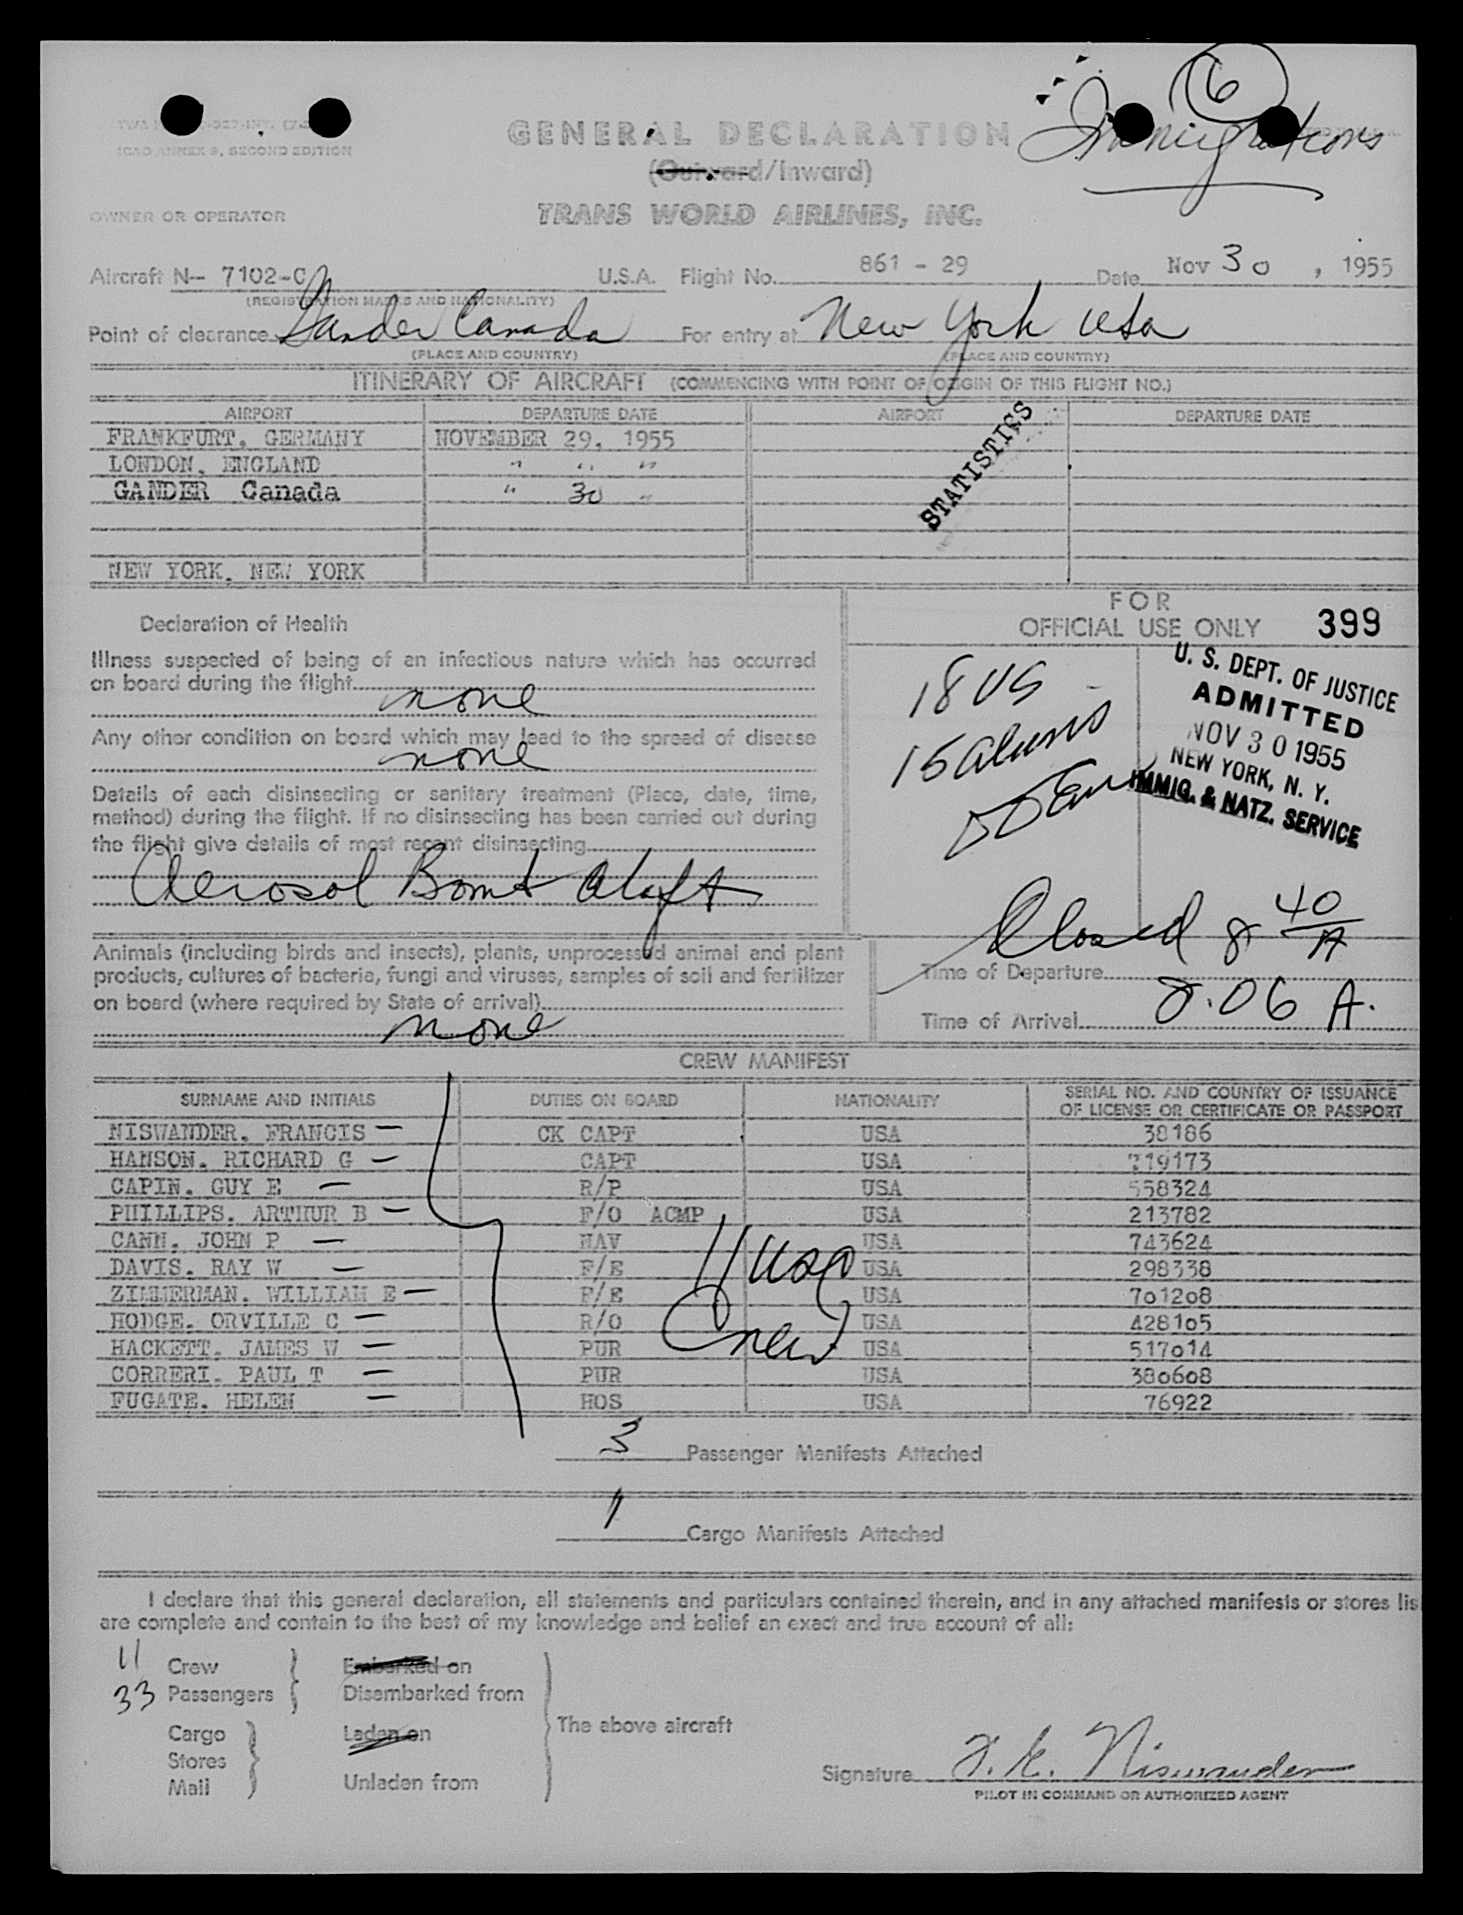 6
Immigrations
ICAO ANNEX 9, SECOND EDITION
GENERAL DECLARATION
(Outward/Inward)
OWNER OR OPERATOR
TRANS WORLD AIRLINES, INC.
Aircraft N- 7102-C U.S.A. Flight No. 861 - 29 Date Nov 30, 1955
(REGISTRATION MARKS AND NATIONALITY)
Point of clearance Gander Canada For entry at New York USA
(PLACE AND COUNTRY) (PLACE AND COUNTRY)
ITINERARY OF AIRCRAFT (COMMENCING WITH POINT OF ORIGIN OF THIS FLIGHT NO.)
AIRPORT DEPARTURE DATE AIRPORT DEPARTURE DATE
FRANKFURT, GERMANY NOVEMBER 29, 1955
LONDON, ENGLAND " " "
GANDER Canada " 30 "
STATISTICS
NEW YORK, NEW YORK
FOR
OFFICIAL USE ONLY 399
Declaration of Health
Illness suspected of being of an infectious nature which has occurred
on board during the flight
none
Any other condition on board which may lead to the spread of disease
none
Details of each disinsecting or sanitary treatment (Place, date, time,
method) during the flight. If no disinsecting has been carried out during
the flight give details of most recent disinsecting
Aerosol Bomb aloft
18 US
15 aliens
U. S. DEPT. OF JUSTICE
ADMITTED
NOV 30 1955
NEW YORK, N. Y.
IMMIG. & NATZ. SERVICE
Closed 8 40/A
Animals (including birds and insects), plants, unprocessed animal and plant
products, cultures of bacteria, fungi and viruses, samples of soil and fertilizer
on board (where required by State of arrival)
none
Time of Departure
Time of Arrival 8.06 A.
CREW MANIFEST
SURNAME AND INITIALS DUTIES ON BOARD NATIONALITY SERIAL NO. AND COUNTRY OF ISSUANCE OF LICENSE OR CERTIFICATE OR PASSPORT
NISWANDER, FRANCIS — CK CAPT USA 38186
HANSON, RICHARD G — CAPT USA 319173
CAPIN, GUY E — R/P USA 558324
PHILLIPS, ARTHUR B — F/O ACMP USA 213782
CANN, JOHN P — NAV USA 743624
DAVIS, RAY W — F/E USA 298338
ZIMMERMAN, WILLIAM E — F/E USA 701208
HODGE, ORVILLE C — R/O USA 428105
HACKETT, JAMES W — PUR USA 517014
CORRERI, PAUL T — PUR USA 380608
FUGATE, HELEN — HOS USA 76922
11 USA
Crew
3 Passenger Manifests Attached
1 Cargo Manifests Attached
I declare that this general declaration, all statements and particulars contained therein, and in any attached manifests or stores lis
are complete and contain to the best of my knowledge and belief an exact and true account of all:
11 Crew Embarked on
33 Passengers Disembarked from
The above aircraft
Cargo Laden on
Stores
Mail Unladen from
Signature F. E. Niswander
PILOT IN COMMAND OR AUTHORIZED AGENT